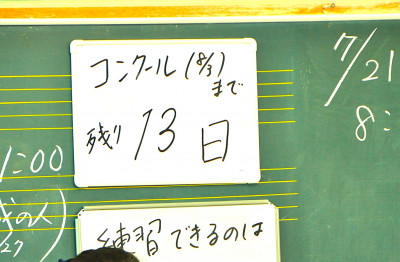 コンクール(8/3)
まで
残り13日
練習できるのは
7/21
8:
1:00
の人)
27